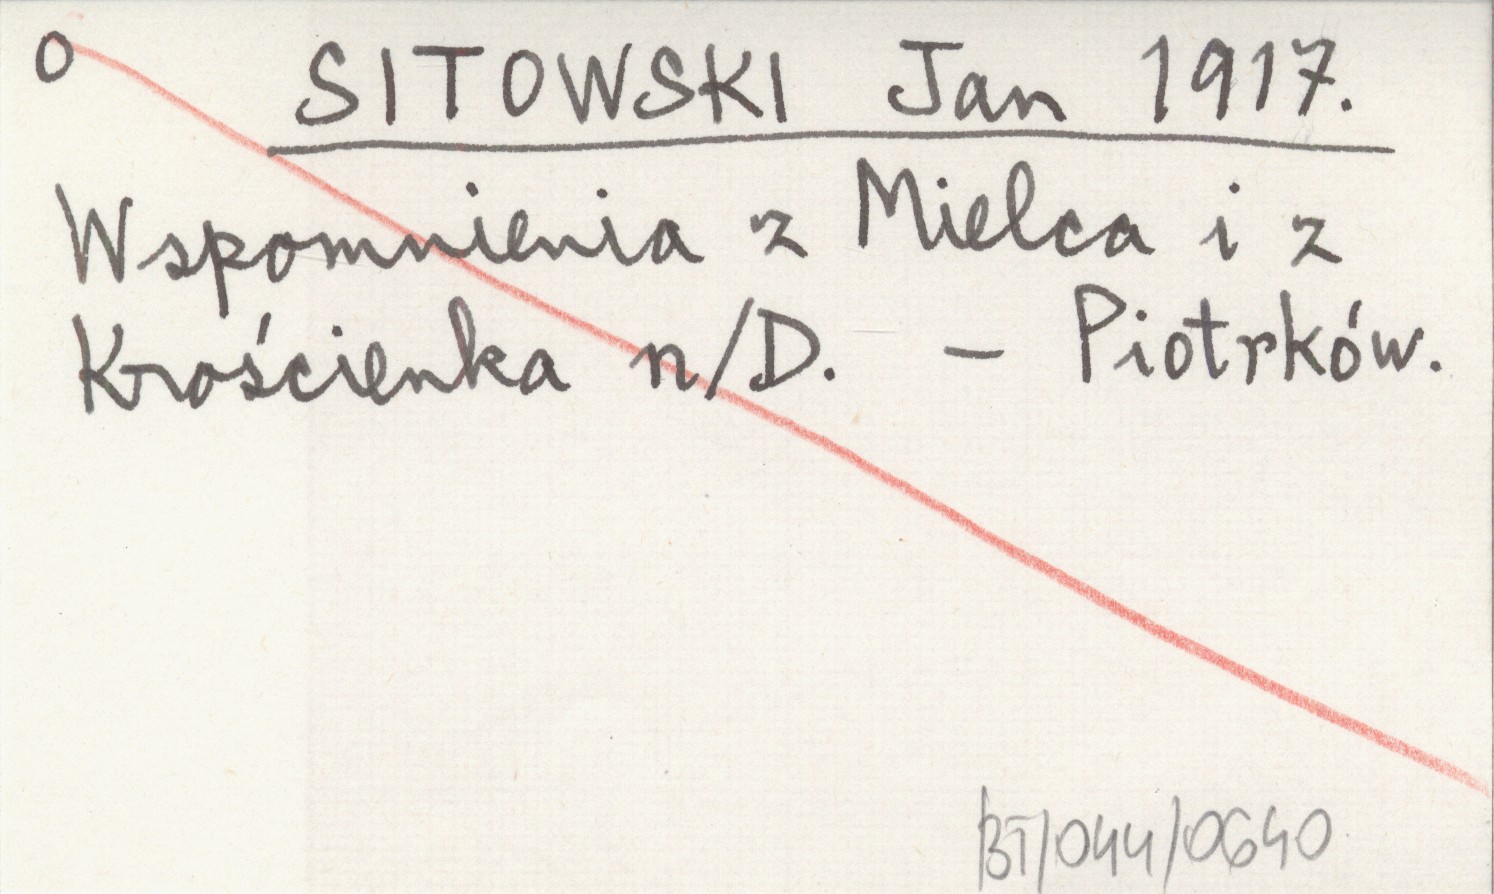 O SITOWSKI Jan 1917.
Wspomnienia z Mielca i z
Krościenka n/D. – Piotrków.
BT/044/0640